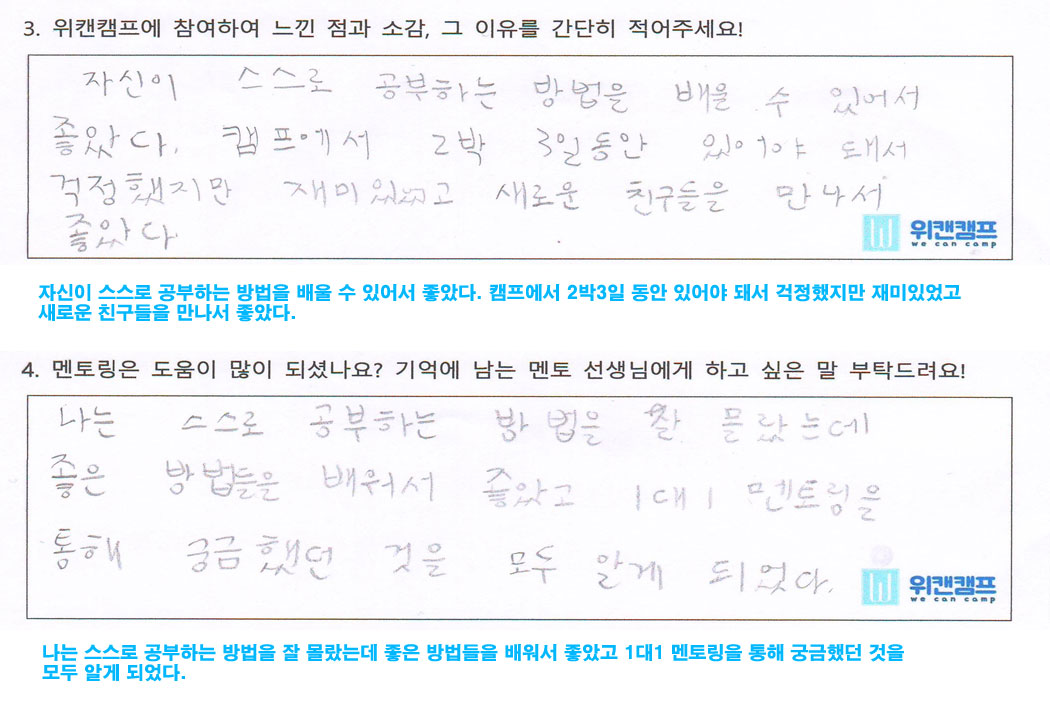 3. 위캔캠프에 참여하여 느낀 점과 소감, 그 이유를 간단히 적어주세요!
자신이 스스로 공부하는 방법을 배울 수 있어서
좋았다. 캠프에서 2박 3일동안 있어야 돼서
걱정했지만 재미있었고 새로운 친구들을 만나서
좋았다
위캔캠프
we can camp
자신이 스스로 공부하는 방법을 배울 수 있어서 좋았다. 캠프에서 2박3일 동안 있어야 돼서 걱정했지만 재미있었고
새로운 친구들을 만나서 좋았다.
4. 멘토링은 도움이 많이 되셨나요? 기억에 남는 멘토 선생님에게 하고 싶은 말 부탁드려요!
나는 스스로 공부하는 방법을 잘 몰랐는데
좋은 방법들을 배워서 좋았고 1대1 멘토링을
통해 궁금했던 것을 모두 알게 되었다.
위캔캠프
we can camp
나는 스스로 공부하는 방법을 잘 몰랐는데 좋은 방법들을 배워서 좋았고 1대1 멘토링을 통해 궁금했던 것을
모두 알게 되었다.